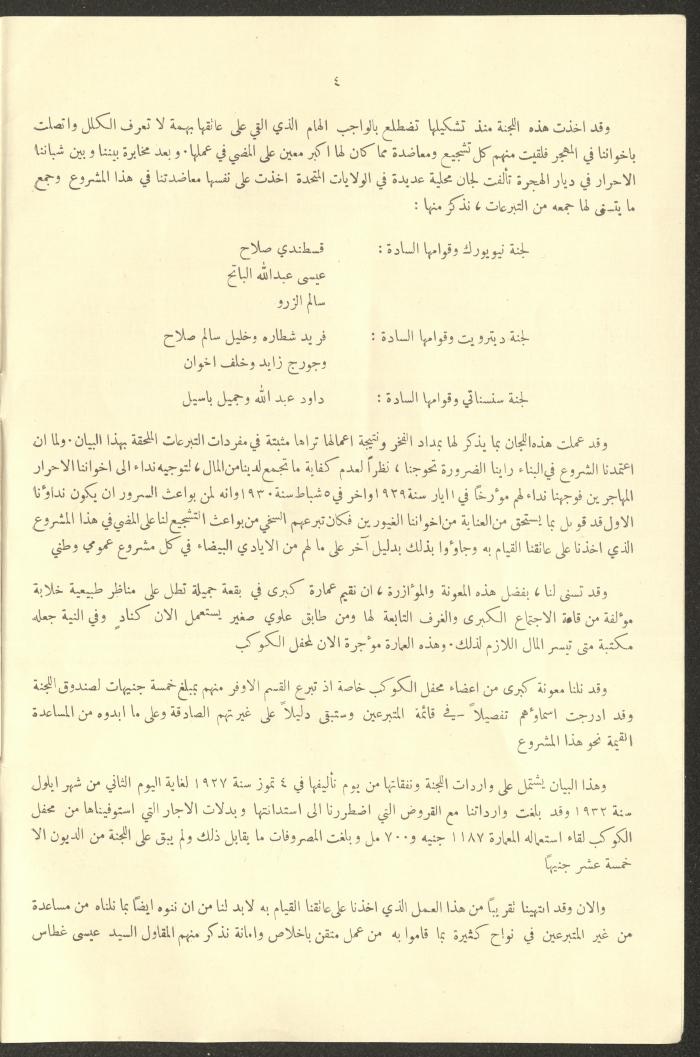 ٤
وقد اخذت هذه اللجنة منذ تشكيلها تضطلع بالواجب الهام الذي القي على عاتقها بهمة لا تعرف الكلل واتصلت
باخواننا في المهجر فلقيت منهم كل تشجيع ومعاضدة مما كان لها اكبر معين على المضي في عملها. وبعد مخابرة بيننا وبين شباننا
الاحرار في ديار الهجرة تألفت لجان محلية عديدة في الولايات المتحدة اخذت على نفسها معاضدتنا في هذا المشروع وجمع
ما يتسنى لها جمعه من التبرعات ، نذكر منها :
لجنة نيويورك وقوامها السادة : قسطندي صلاح
عيسى عبدالله الباتح
سالم الزرو
لجنة ديترويت وقوامها السادة : فريد شطاره وخليل سالم صلاح
وجورج زايد وخلف اخوان
لجنة سنسناتي وقوامها السادة : داود عبد الله وجميل باسيل
وقد عملت هذه اللجان بما يذكر لها بمداد الفخر ونتيجة اعمالها تراها مثبتة في مفردات التبرعات الملحقة بهذا البيان. ولما ان
اعتمدنا الشروع في البناء راينا الضرورة تحوجنا ، نظراً لعدم كفاية ما تجمع لدينا من المال، لتوجيه نداء الى اخواننا الاحرار
المهاجرين فوجهنا نداء لهم مؤرخاً في ١ ايار سنة ١٩٢٩ واخر في ٥ شباط سنة ١٩٣٠ وانه لمن بواعث السرور ان يكون نداؤنا
الاول قد قوبل بما يستحق من العناية من اخواننا الغيورين فكان تبرعهم السخي من بواعث التشجيع لنا على المضي في هذا المشروع
الذي اخذنا على عاتقنا القيام به وجاؤوا بذلك بدليل آخر على ما لهم من الايادي البيضاء في كل مشروع عمومي وطني
وقد تسنى لنا ، بفضل هذه المعونة والمؤازرة ، ان نقيم عمارة كبرى في بقعة جميلة تطل على مناظر طبيعية خلابة
مؤلفة من قاعة الاجتماع الكبرى والغرف التابعة لها ومن طابق علوي صغير يستعمل الان كنادٍ وفي النية جعله
مكتبة متى تيسر المال اللازم لذلك. وهذه العمارة مؤجرة الان لمحفل الكوكب
وقد نلنا معونة كبرى من اعضاء محفل الكوكب خاصة اذ تبرع القسم الاوفر منهم بمبلغ خمسة جنيهات لصندوق اللجنة
وقد ادرجت اسماؤهم تفصيلاً في قائمة المتبرعين وستبقى دليلاً على غيرتهم الصادقة وعلى ما ابدوه من المساعدة
القيمة نحو هذا المشروع
وهذا البيان يشتمل على واردات اللجنة ونفقاتها من يوم تأليفها في ٤ تموز سنة ١٩٢٧ لغاية اليوم الثاني من شهر ايلول
سنة ١٩٣٢ وقد بلغت وارداتنا مع القروض التي اضطررنا الى استدانتها وبدلات الاجار التي استوفيناها من محفل
الكوكب لقاء استعماله العمارة ١١٨٧ جنيه و٧٠٠ مل وبلغت المصروفات ما يقابل ذلك ولم يبق على اللجنة من الديون الا
خمسة عشر جنيهاً
والان وقد انتهينا تقريباً من هذا العمل الذي اخذنا على عاتقنا القيام به لابد لنا من ان ننوه ايضاً بما نلناه من مساعدة
من غير المتبرعين في نواح كثيرة بما قاموا به من عمل متقن باخلاص وامانة نذكر منهم المقاول السيد عيسى غطاس